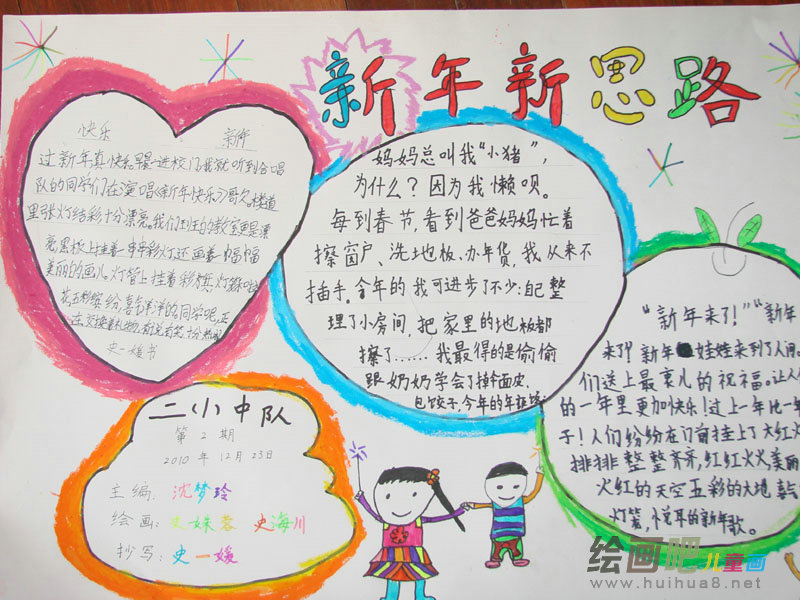 新年新思路
快乐 新年
过新年真快乐!早晨一进校门我就听到合唱
队的同学们在演唱《新年快乐》哥久。楼道
里张灯结彩十分漂亮。我们班的教室更是漂
亮黑板上挂着一串串彩灯还画着一幅幅
美丽的画儿。灯管上挂着彩旗灯笼啦
花五彩缤纷喜气洋洋的同学呢,正
在交换着礼物,有说有笑,十分热闹
史一媛书
妈妈总叫我“小猪”,
为什么?因为我懒呗。
每到春节,看到爸爸妈妈忙着
擦窗户、洗地板、办年货,我从来不
插手。今年的我可进步了不少:自己整
理了小房间,把家里的地板都
擦了……我最得的是偷偷
跟奶奶学会了擀面皮、
包饺子,今年的年夜饭
“新年来了!”“新年
来了!新年娃娃来到了人间。
们送上最衷儿的祝福。让人们
的一年里更加快乐!过上一年比一年
子!人们纷纷在门前挂上了大红火
排排整整齐齐,红红火火,美丽
火红的天空五彩的大地
灯笼,悦耳的新年歌。
二小中队
第2期
2010年12月23日
主编:沈梦玲
绘画:史姝蓉 史海川
抄写:史一媛
绘画吧儿童画
www.huihua8.net